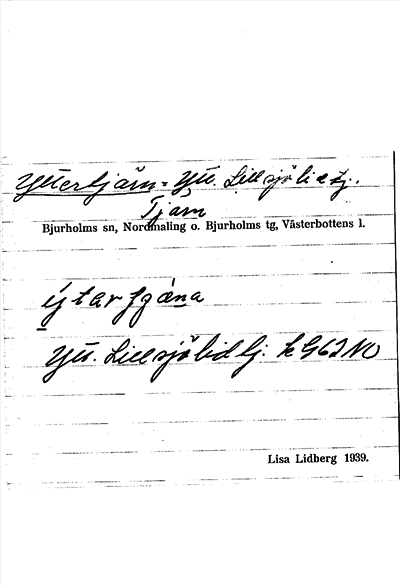 Yttertjärn = Ytt. Lillsjölidtj.
Tjärn
Bjurholms sn, Nordmaling o. Bjurholms tg, Västerbottens l.
Ytt. Lillsjölidtj. k G62 NO
Lisa Lidberg 1939.